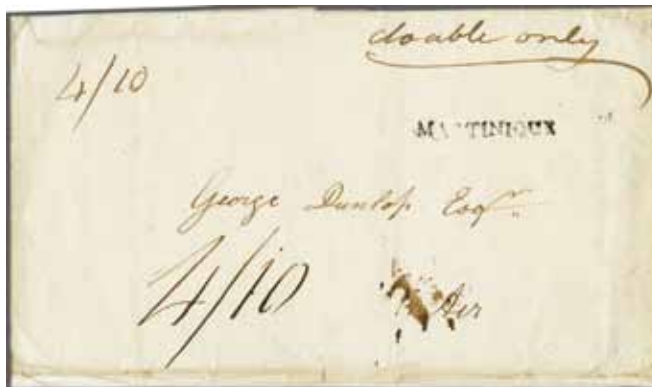 double only
4/10
MARTINIQUE
George Dunlop Esqr.
4/10
Air